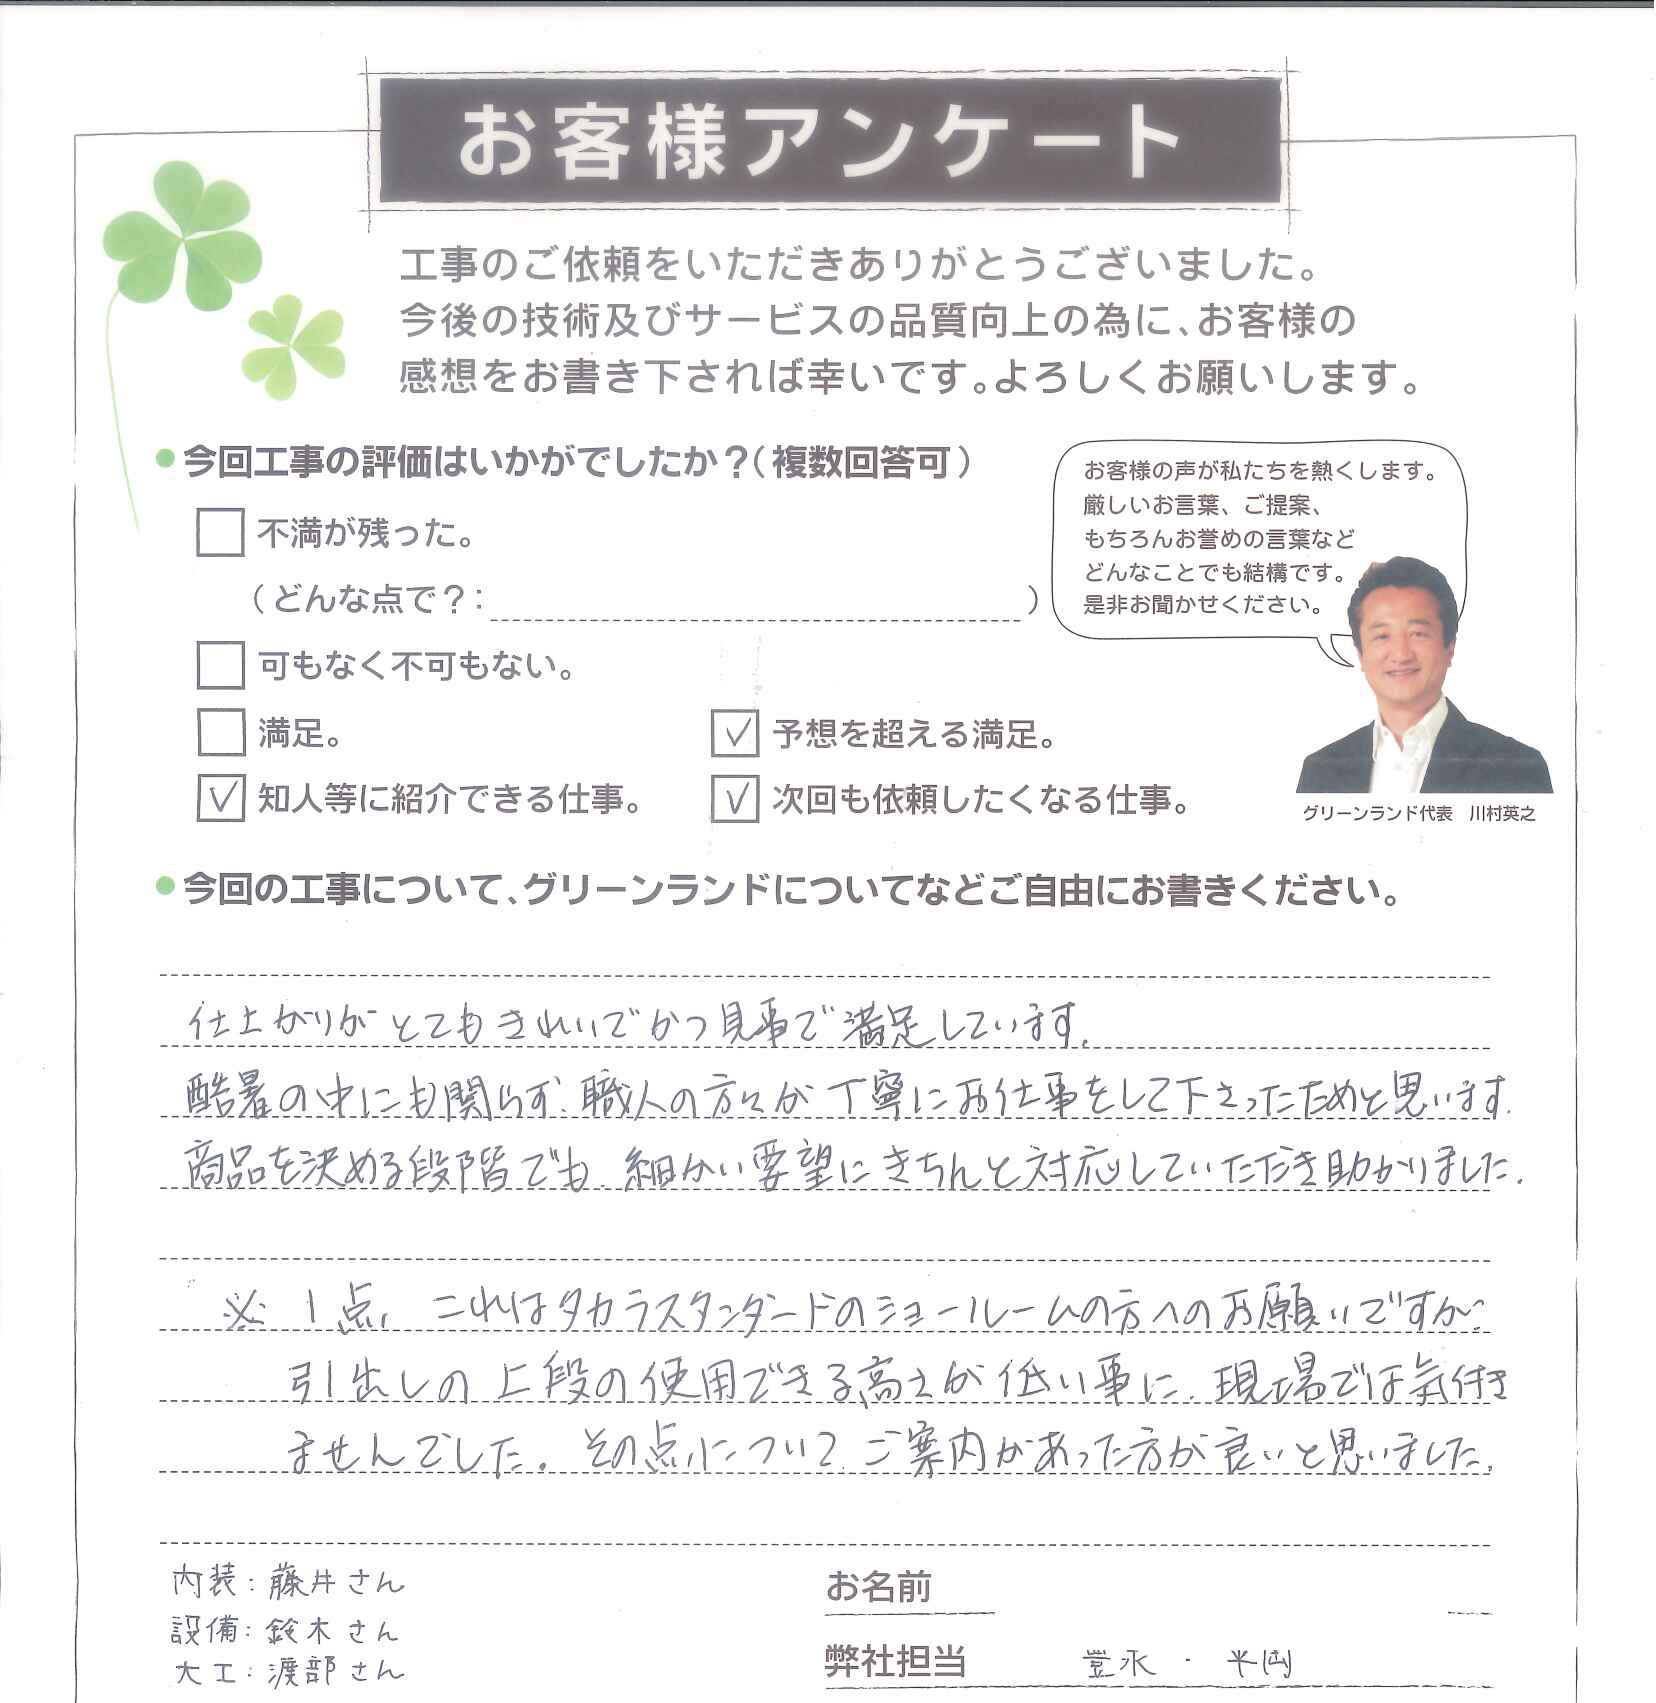 お客様アンケート
工事のご依頼をいただきありがとうございました。
今後の技術及びサービスの品質向上の為に、お客様の
感想をお書き下されば幸いです。よろしくお願いします。
●今回工事の評価はいかがでしたか？（複数回答可）
不満が残った。
（どんな点で？：　）
可もなく不可もない。
満足。
☑予想を超える満足。
☑知人等に紹介できる仕事。
☑次回も依頼したくなる仕事。
お客様の声が私たちを熱くします。
厳しいお言葉、ご提案、
もちろんお誉めの言葉など
どんなことでも結構です。
是非お聞かせください。
グリーンランド代表　川村英之
●今回の工事について、グリーンランドについてなどご自由にお書きください。
仕上がりがとてもきれいでかつ見事で満足しています。
酷暑の中にも関らず、職人の方々が丁寧にお仕事をして下さったためと思います。
商品を決める段階でも、細かい要望にきちんと対応していただき助かりました。
※ 1点、これはタカラスタンダードのショールームの方へのお願いですが、
引出しの上段の使用できる高さが低い事に、現場では気付き
ませんでした。その点について、ご案内があった方が良いと思いました。
内装：藤井さん
設備：鈴木さん
大工：渡部さん
お名前
弊社担当　豊永・平岡